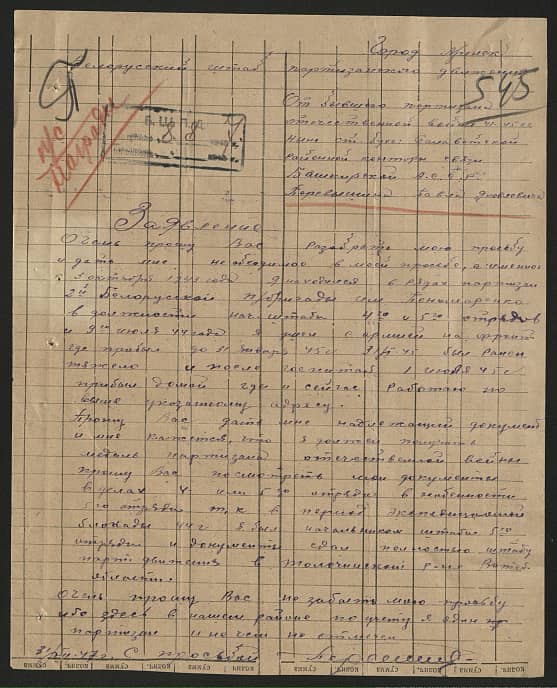 Город Минск
Белорусский штаб партизанского движения
545
От бывшего партизана
отечественной войны 41-45 гг.
районной конторы связи
Башкирской А.С.С.Р.
Павла Яковлевича
н/с
Награды
Заявление
Очень прошу Вас разобрать мою просьбу
и дать мне необходимое в моей просьбе, а именно
с октября 1943 года я находился в рядах партизан
2й Белорусской п/бригады им Пономаренко
в должности нач. штаба 4го и 5го отрядов
и 9го июля 44 года я ушел с армией на фронт
где пробыл до 31 января 45 г. 31/I 45 был ранен
тяжело и после госпиталя 1 июля 45 г.
прибыл домой где и сейчас работаю по
выше указанному адресу.
Прошу Вас дать мне надлежащий документ
и мне кажется, что я должен получить
медаль партизана отечественной войны
прошу Вас посмотреть мои документы
в делах 4 или 5го отрядов в особенности
5го отряда т.к в период экспедиционной
блокады 44 г. я был начальником штаба 5го
отряда и документы сдал полностью штабу
парт движения в Толочинский р-не Витеб.
области.
Очень прошу Вас не забыть мою просьбу
ибо здесь в нашем районе по учету я один из
партизан и ни чем не отмечен
С просьбой
КОПИЯ. СУММА КОПИЯ. СУММА КОПИЯ. СУММА КОПИЯ. СУММА